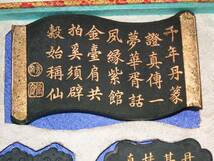 千年丹篆
證真傳一
夢華胥話
夙緣紫館
金臺肩共
拍奚須辟
穀始稱仙